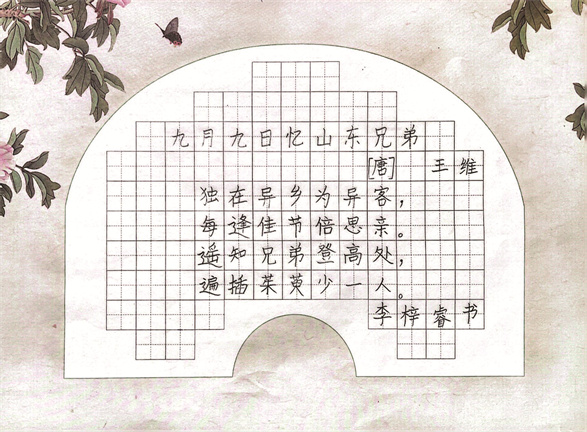 九月九日忆山东兄弟
[唐] 王维
独在异乡为异客，
每逢佳节倍思亲。
遥知兄弟登高处，
遍插茱萸少一人。
李梓睿书